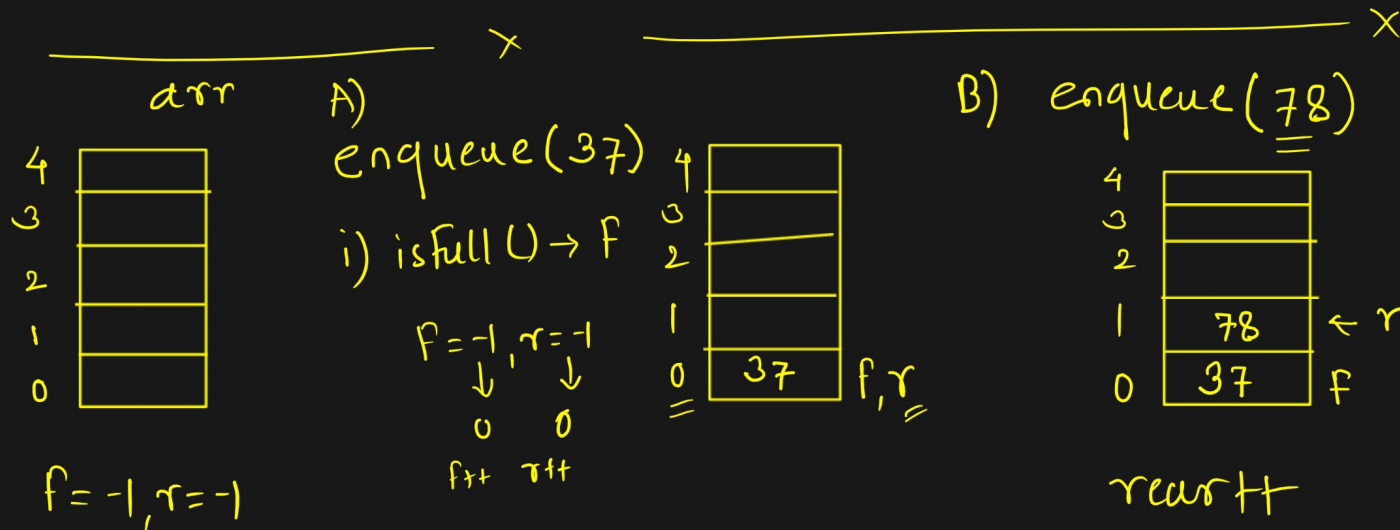 arr
4
3
2
1
0
f = -1, r = -1
A)
enqueue(37)
i) isfull() → F
F = -1, r = -1
↓ ↓
0 0
f++ r++
4
3
2
1
0 37 f, r
B) enqueue(78)
4
3
2
1 78 ← r
0 37 F
rear++